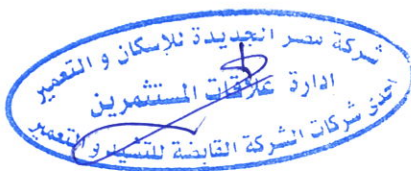 شركة مصر الجديدة للإسكان و التعمير
ادارة علاقات المستثمرين
احدى شركات الشركة القابضة للتشييد و التعمير